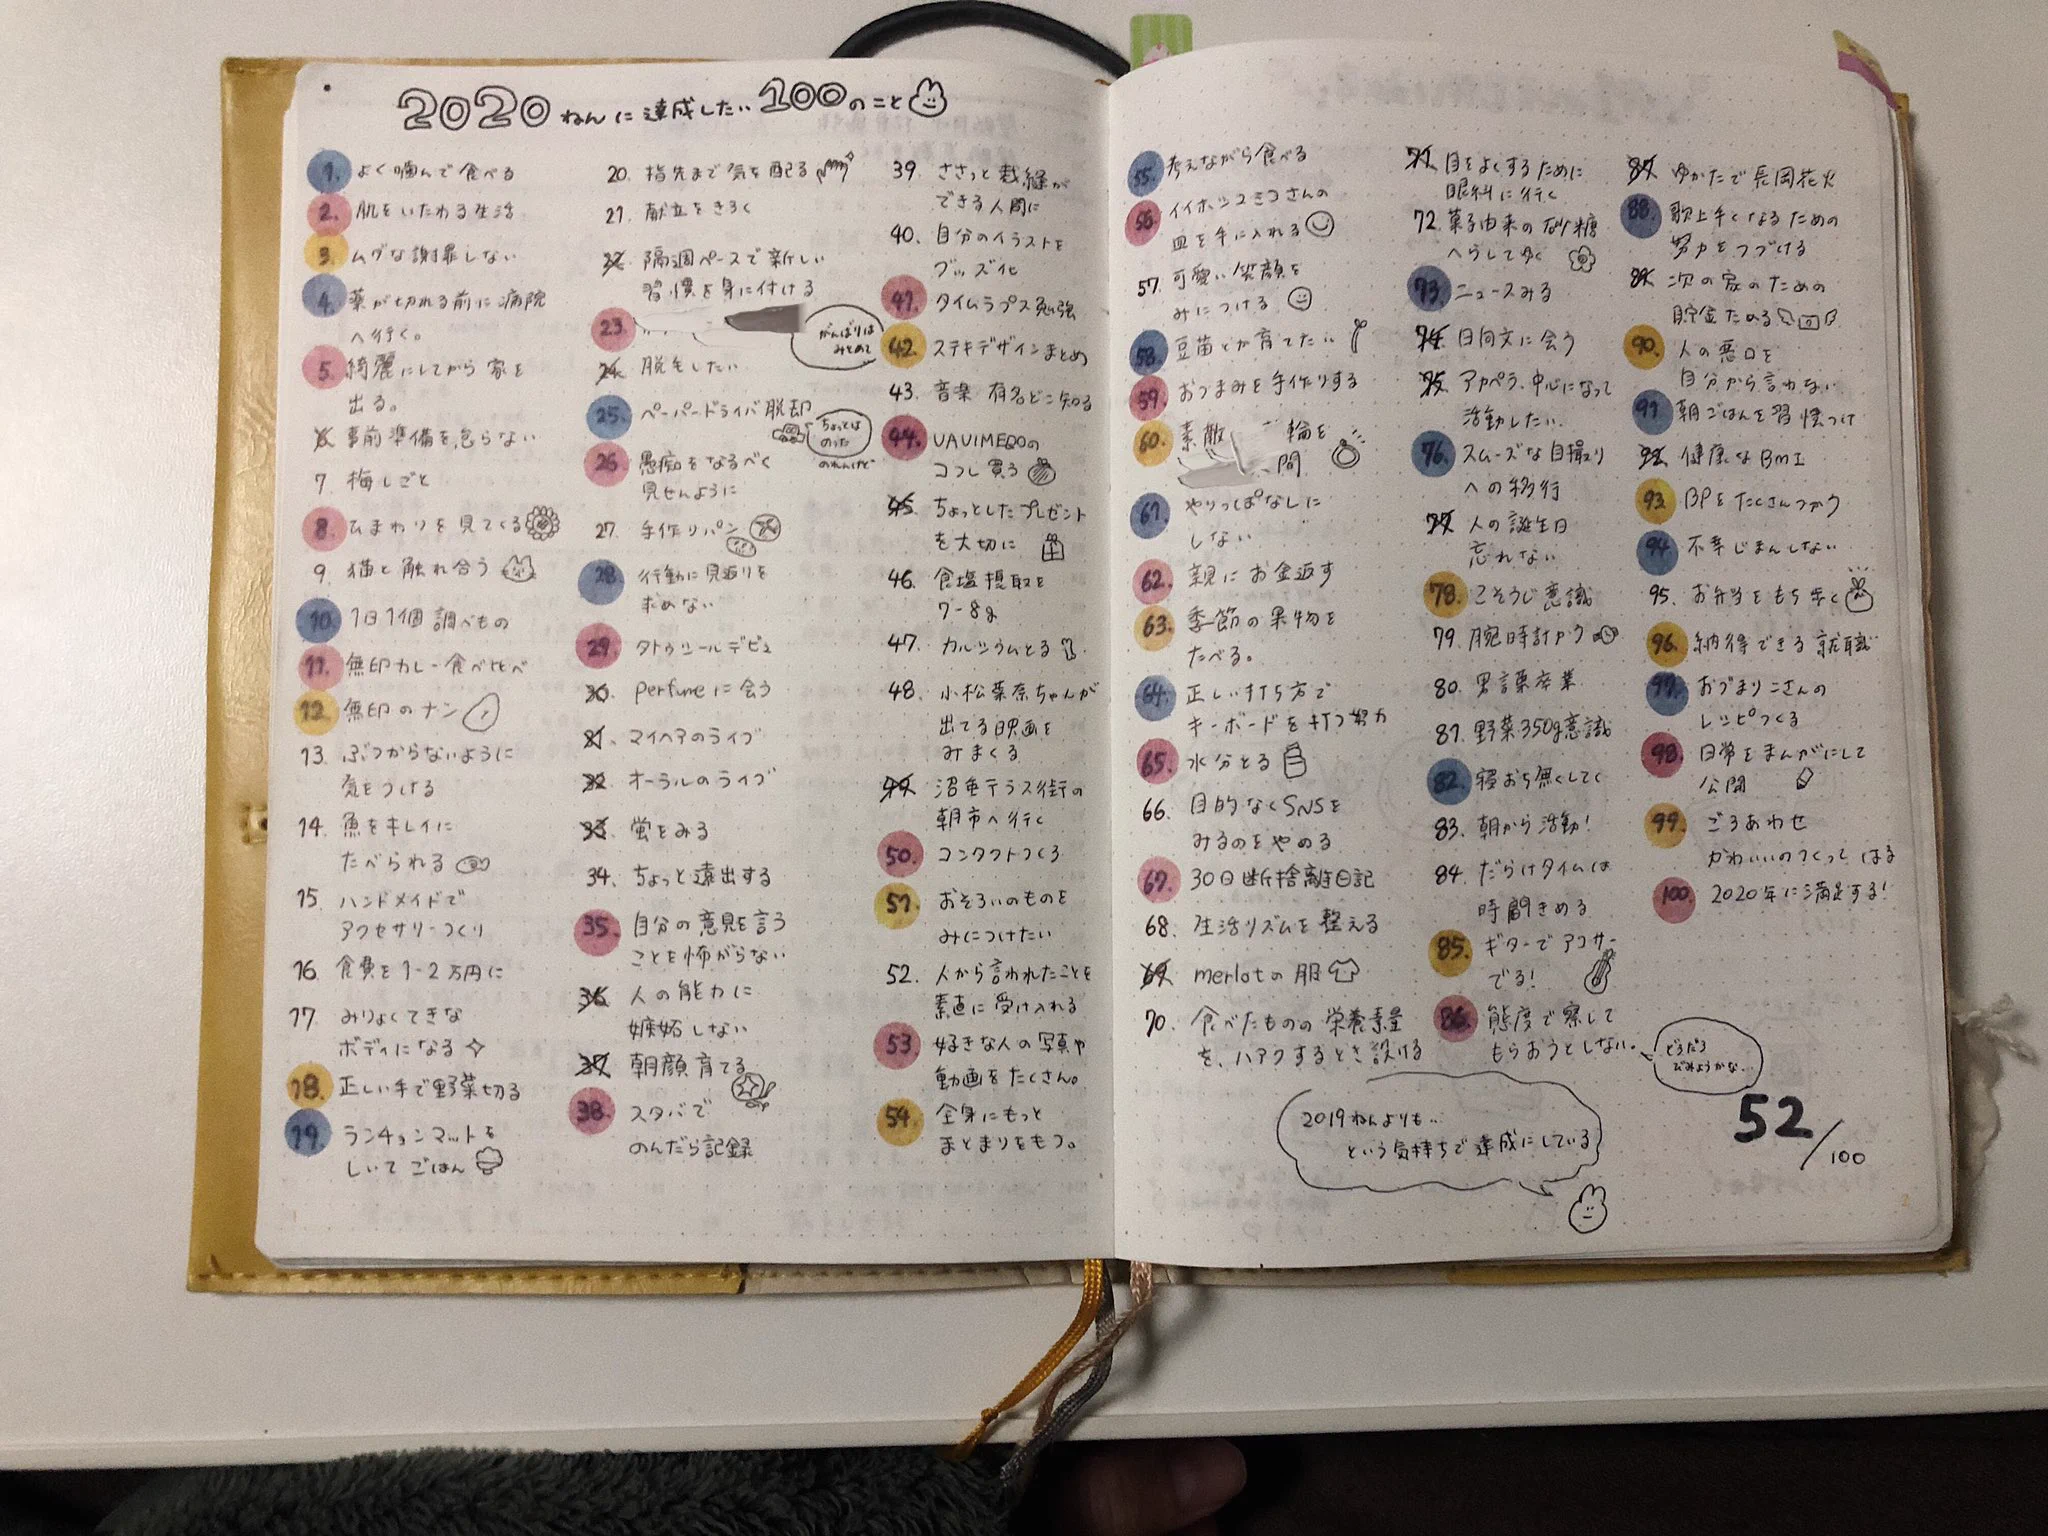 2020 ねんに達成したい 100のこと
1. よく噛んで食べる
2. 肌をいたわる生活
3. ムダな謝罪しない
4. 薬が切れる前に病院
へ行く。
5. 綺麗にしてから家を
出る。
6. 事前準備を怠らない
7 梅しごと
8. ひまわりを見てくる
9. 猫と触れ合う
10. 1日1個調べもの
11. 無印カレー食べ比べ
12. 無印のナン
13. ぶつからないように
気をつける
14. 魚をキレイに
たべられる
15. ハンドメイドで
アクセサリーつくり
16. 食費を1-2万円に
17. みりょくてきな
ボディになる
18. 正しい手で野菜切る
19. ランチョンマットを
しいてごはん
20. 指先まで気を配る
21. 献立をきろく
22. 隔週ペースで新しい
習慣を身に付ける
23.
がんばりは
みとめて
24. 脱毛したい
25. ペーパードライバ脱却
ちょっとは
のった
26. 愚痴をなるべく
見せんように
27. 手作りパン
28. 行動に見返りを
求めない
29. タトゥシールデビュ
30. perfumeに会う
31. マイヘアのライブ
32. オーラルのライブ
33. 蛍をみる
34. ちょっと遠出する
35. 自分の意見を言う
ことを怖がらない
36. 人の能力に
嫉妬しない
37. 朝顔育てる
38. スタバで
のんだら記録
39 ささっと裁縫が
できる人間に
40. 自分のイラストを
グッズ化
41. タイムラプス勉強
42. ステキデザインまとめ
43. 音楽 有名どこ知る
44. UAUIMEQOの
コフレ買う
45. ちょっとしたプレゼント
を大切に
46. 食塩摂取を
7-8g
47. カルシウムとる
48. 小松菜奈ちゃんが
出てる映画を
みまくる
49. 沼垂テラス街の
朝市へ行く
50. コンタクトつくる
51. おそろいのものを
みにつけたい
52. 人から言われたことを
素直に受け入れる
53 好きな人の写真や
動画をたくさん。
54. 全身にもっと
まとまりをもつ。
55. 考えながら食べる
56. イイホシユミコさんの
皿を手に入れる
57. 可愛い笑顔を
みにつける
58. 豆苗とか育てたい
59. おつまみを手作りする
60. 素敵 輪を
間
61. やりっぱなしに
しない
62. 親にお金返す
63. 季節の果物を
たべる。
64. 正しい打ち方で
キーボードを打つ努力
65. 水分とる
66. 目的なくSNSを
みるのをやめる
67. 30日断捨離日記
68. 生活リズムを整える
69. merlotの服
70. 食べたものの栄養素量
を、ハアクするとき設ける
71. 目をよくするために
眼科に行く
72. 菓子由来の砂糖
へらしてゆく
73. ニュースみる
74. 日向文に会う
75. アカペラ、中心になって
活動したい。
76. スムーズな自撮り
への移行
77. 人の誕生日
忘れない
78. こそうじ意識
79. 腕時計かう
80. 男言葉卒業
81. 野菜350g意識
82. 寝おち無くしてく
83. 朝から活動!
84. だらけタイムは
時間きめる
85. ギターでアコサー
でる!
86. 態度で察して
もらおうとしない。
どうだろ
でみようかな…
87. ゆかたで長岡花火
88. 歌上手くなるための
努力をつづける
89. 次の家のための
貯金ためる
90. 人の悪口を
自分から言わない
91. 朝ごはんを習慣つけ
92. 健康なBMI
93. BPをたくさんつかう
94. 不幸じまんしない
95. お弁当をもち歩く
96. 納得できる就職
97. おづまりこさんの
レシピつくる
98. 日常をまんがにして
公開
99. ごろあわせ
かわいいのつくってはる
100. 2020年に満足する!
2019ねんよりも…
という気持ちで達成にしている
52/100